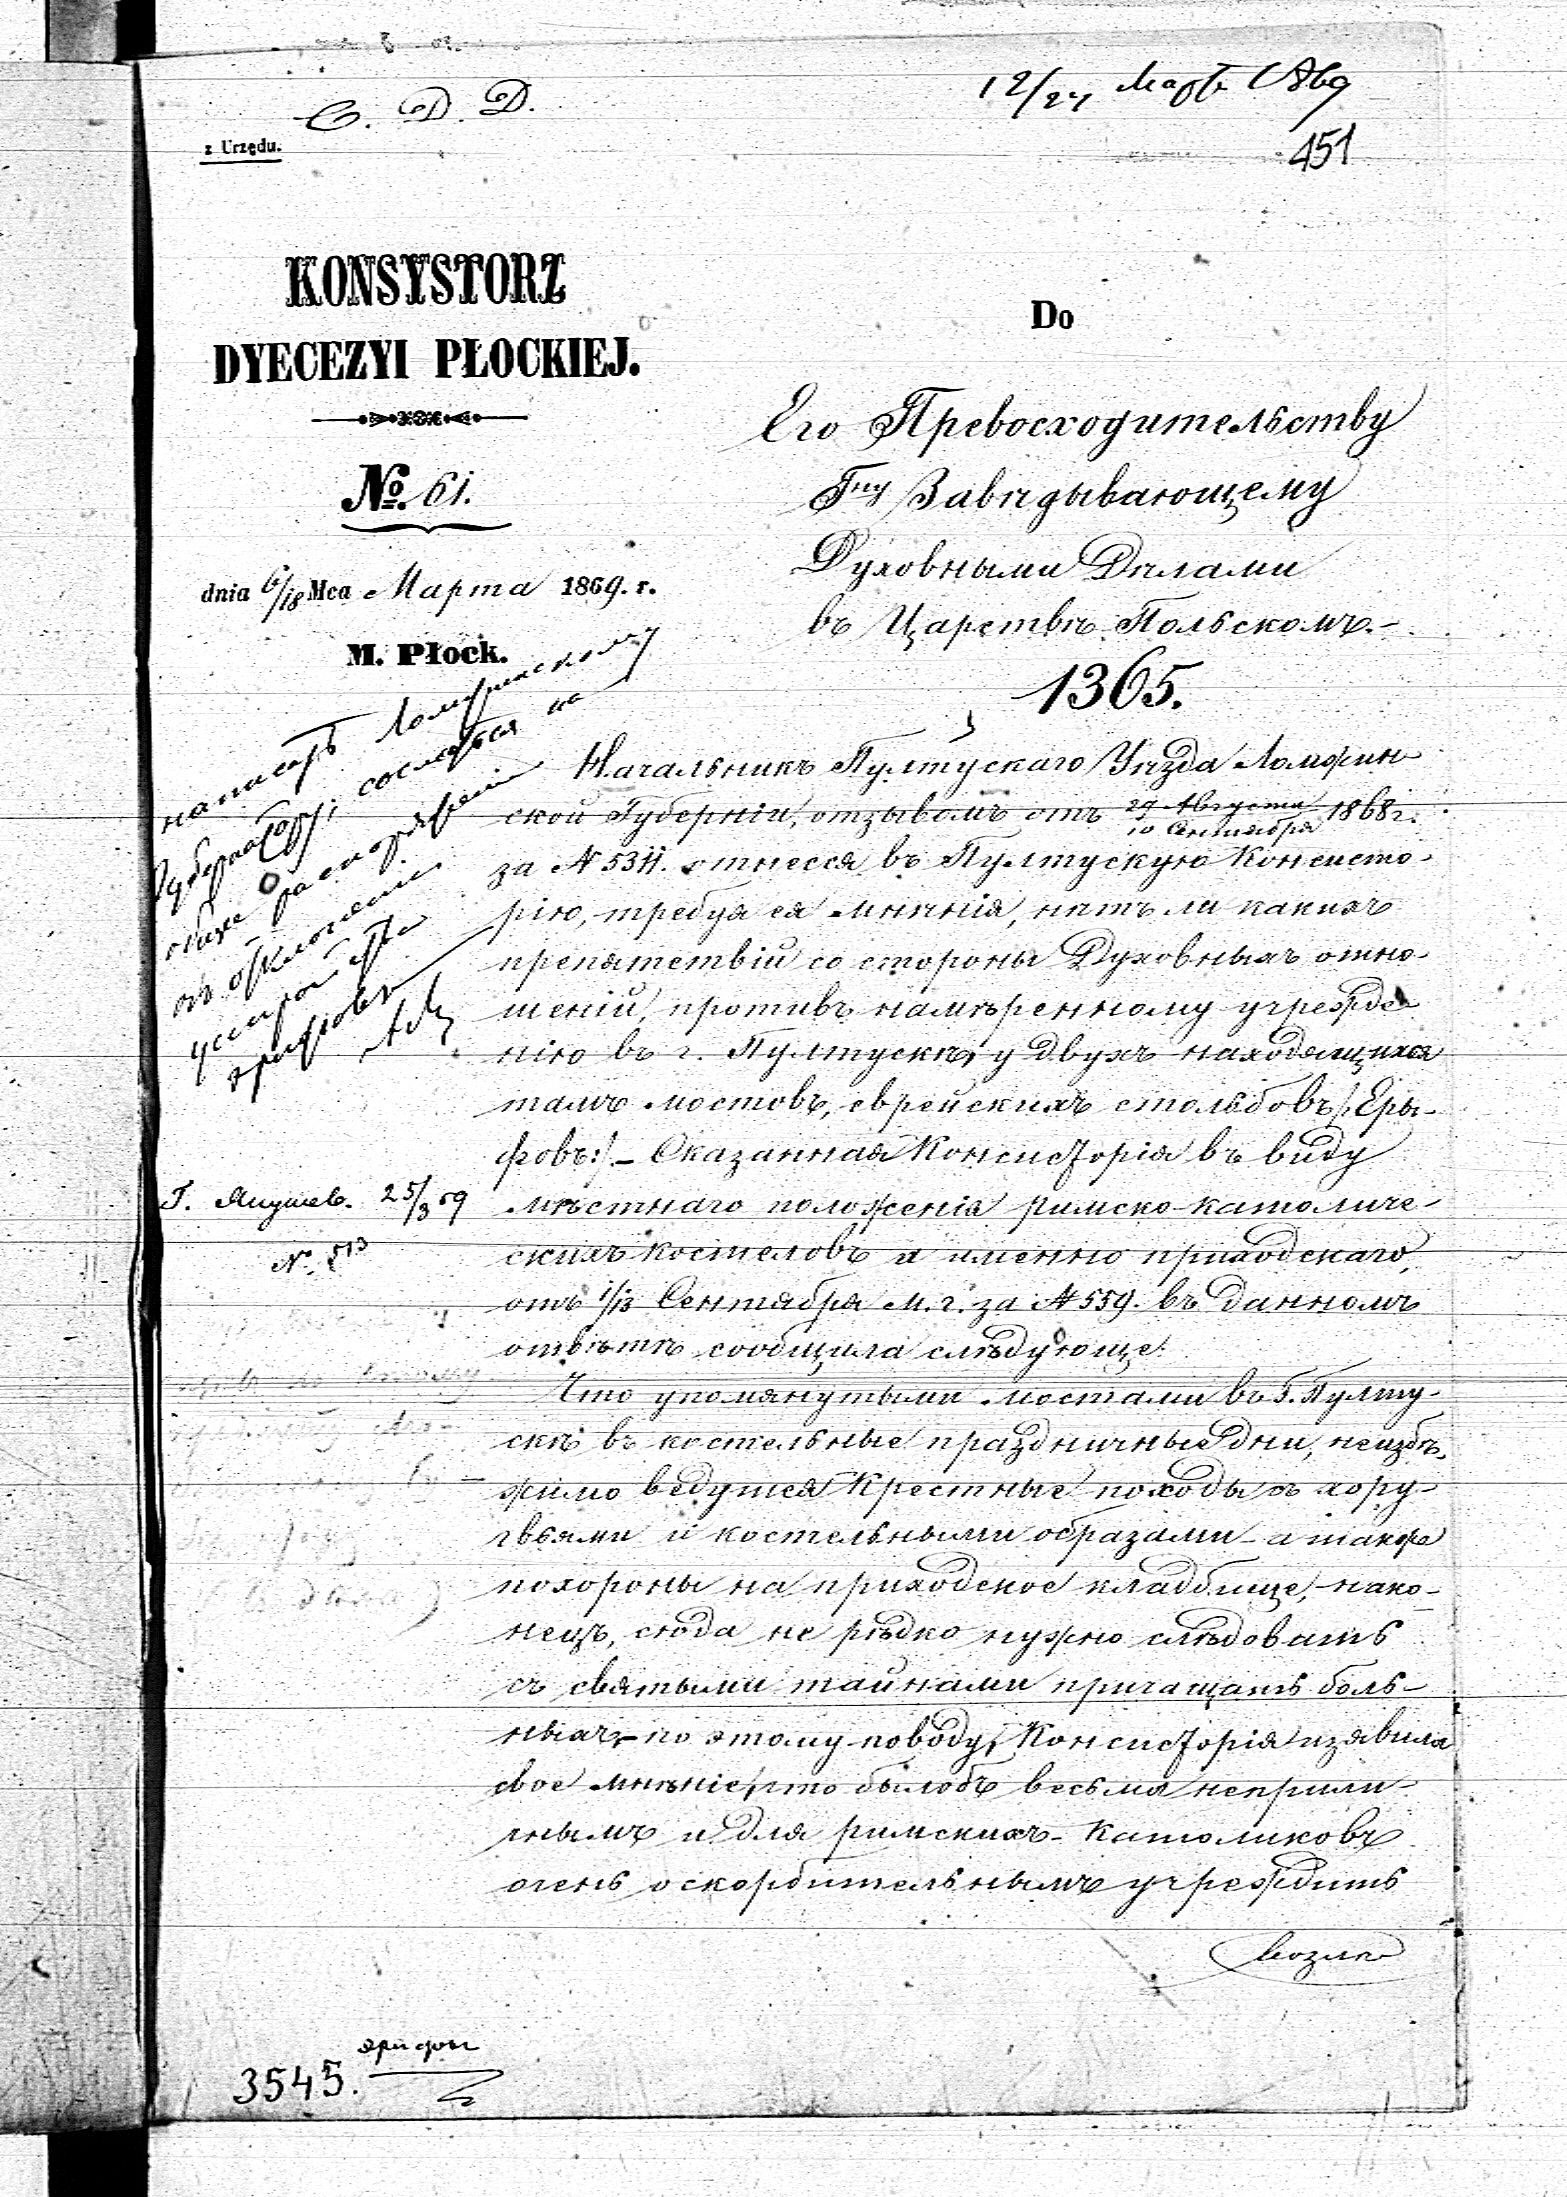 С. D. D.
12/24 Март 1869
z Urzędu.
451
KONSYSTORZ
DYECEZYI PŁOCKIEJ.
№ 61.
dnia 6/18 Mca Марта 1869. r.
M. Płock.
Do
Его Превосходительству
Гну Завѣдывающему
Духовными Дѣлами
въ Царствѣ Польскомъ.-
1365.
написать Ломжинскому
Губернатору, сослаться на
общее распоряженіе
объ отклоненіи
устройства
эрифовъ
Г. Янушев. 25/3 69
№ 513
Начальникъ Пултускаго Уѣзда Ломжин
ской Губерніи, отзывомъ отъ 29 Августа/10 Сентября 1868 г.
за № 5311. отнесся въ Пултускую Консисто-
рію, требуя ея мнѣнія, нѣтъ ли какихъ
препятствій со стороны Духовныхъ отно-
шеній, противъ намѣренному учрежде
нію въ г. Пултускѣ, у двухъ находящихся
тамъ мостовъ, еврейскихъ столбовъ /: Еры-
фовъ:/ - Сказанная Консисторія въ виду
мѣстнаго положенія римско-католиче-
скихъ костеловъ а именно приходскаго,
отъ 1/13 Сентября м. г. за № 559. въ данномъ
отвѣтѣ сообщила слѣдующе:
Что упомянутыми мостами въ Г. Пулту-
скѣ въ костельные праздничные дни, неизбѣ-
жимо ведутся Крестные походы съ хору-
гвьями и костельными образами - а также
похороны на приходское кладбище, - нако-
нецъ, сюда не рѣдко нужно слѣдовать
съ святыми тайнами причащать боль-
ныхъ, - по этому поводу, Консисторія изявила
свое мнѣніе, что былобъ весьма неприли-
чнымъ и для римскихъ-Католиковъ
очень оскорбительнымъ учреждить
возлѣ
3545.
эрифы